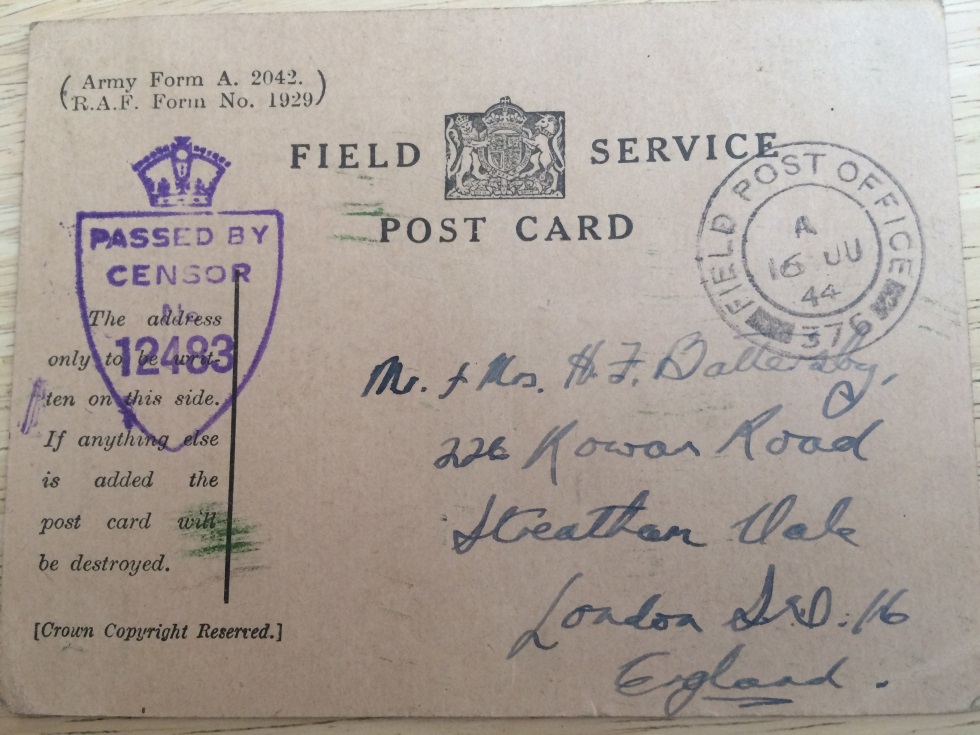 (Army Form A. 2042.
R.A.F. Form No. 1929)
FIELD SERVICE
POST CARD
PASSED BY
CENSOR
No
12483
FIELD POST OFFICE
A
16 JU
44
376
The address
only to be writ-
ten on this side.
If anything else
is added the
post card will
be destroyed.
[Crown Copyright Reserved.]
Mr. & Mrs. H. F. Battersby,
226 Rowan Road
Streatham Vale
London S.W. 16
England.